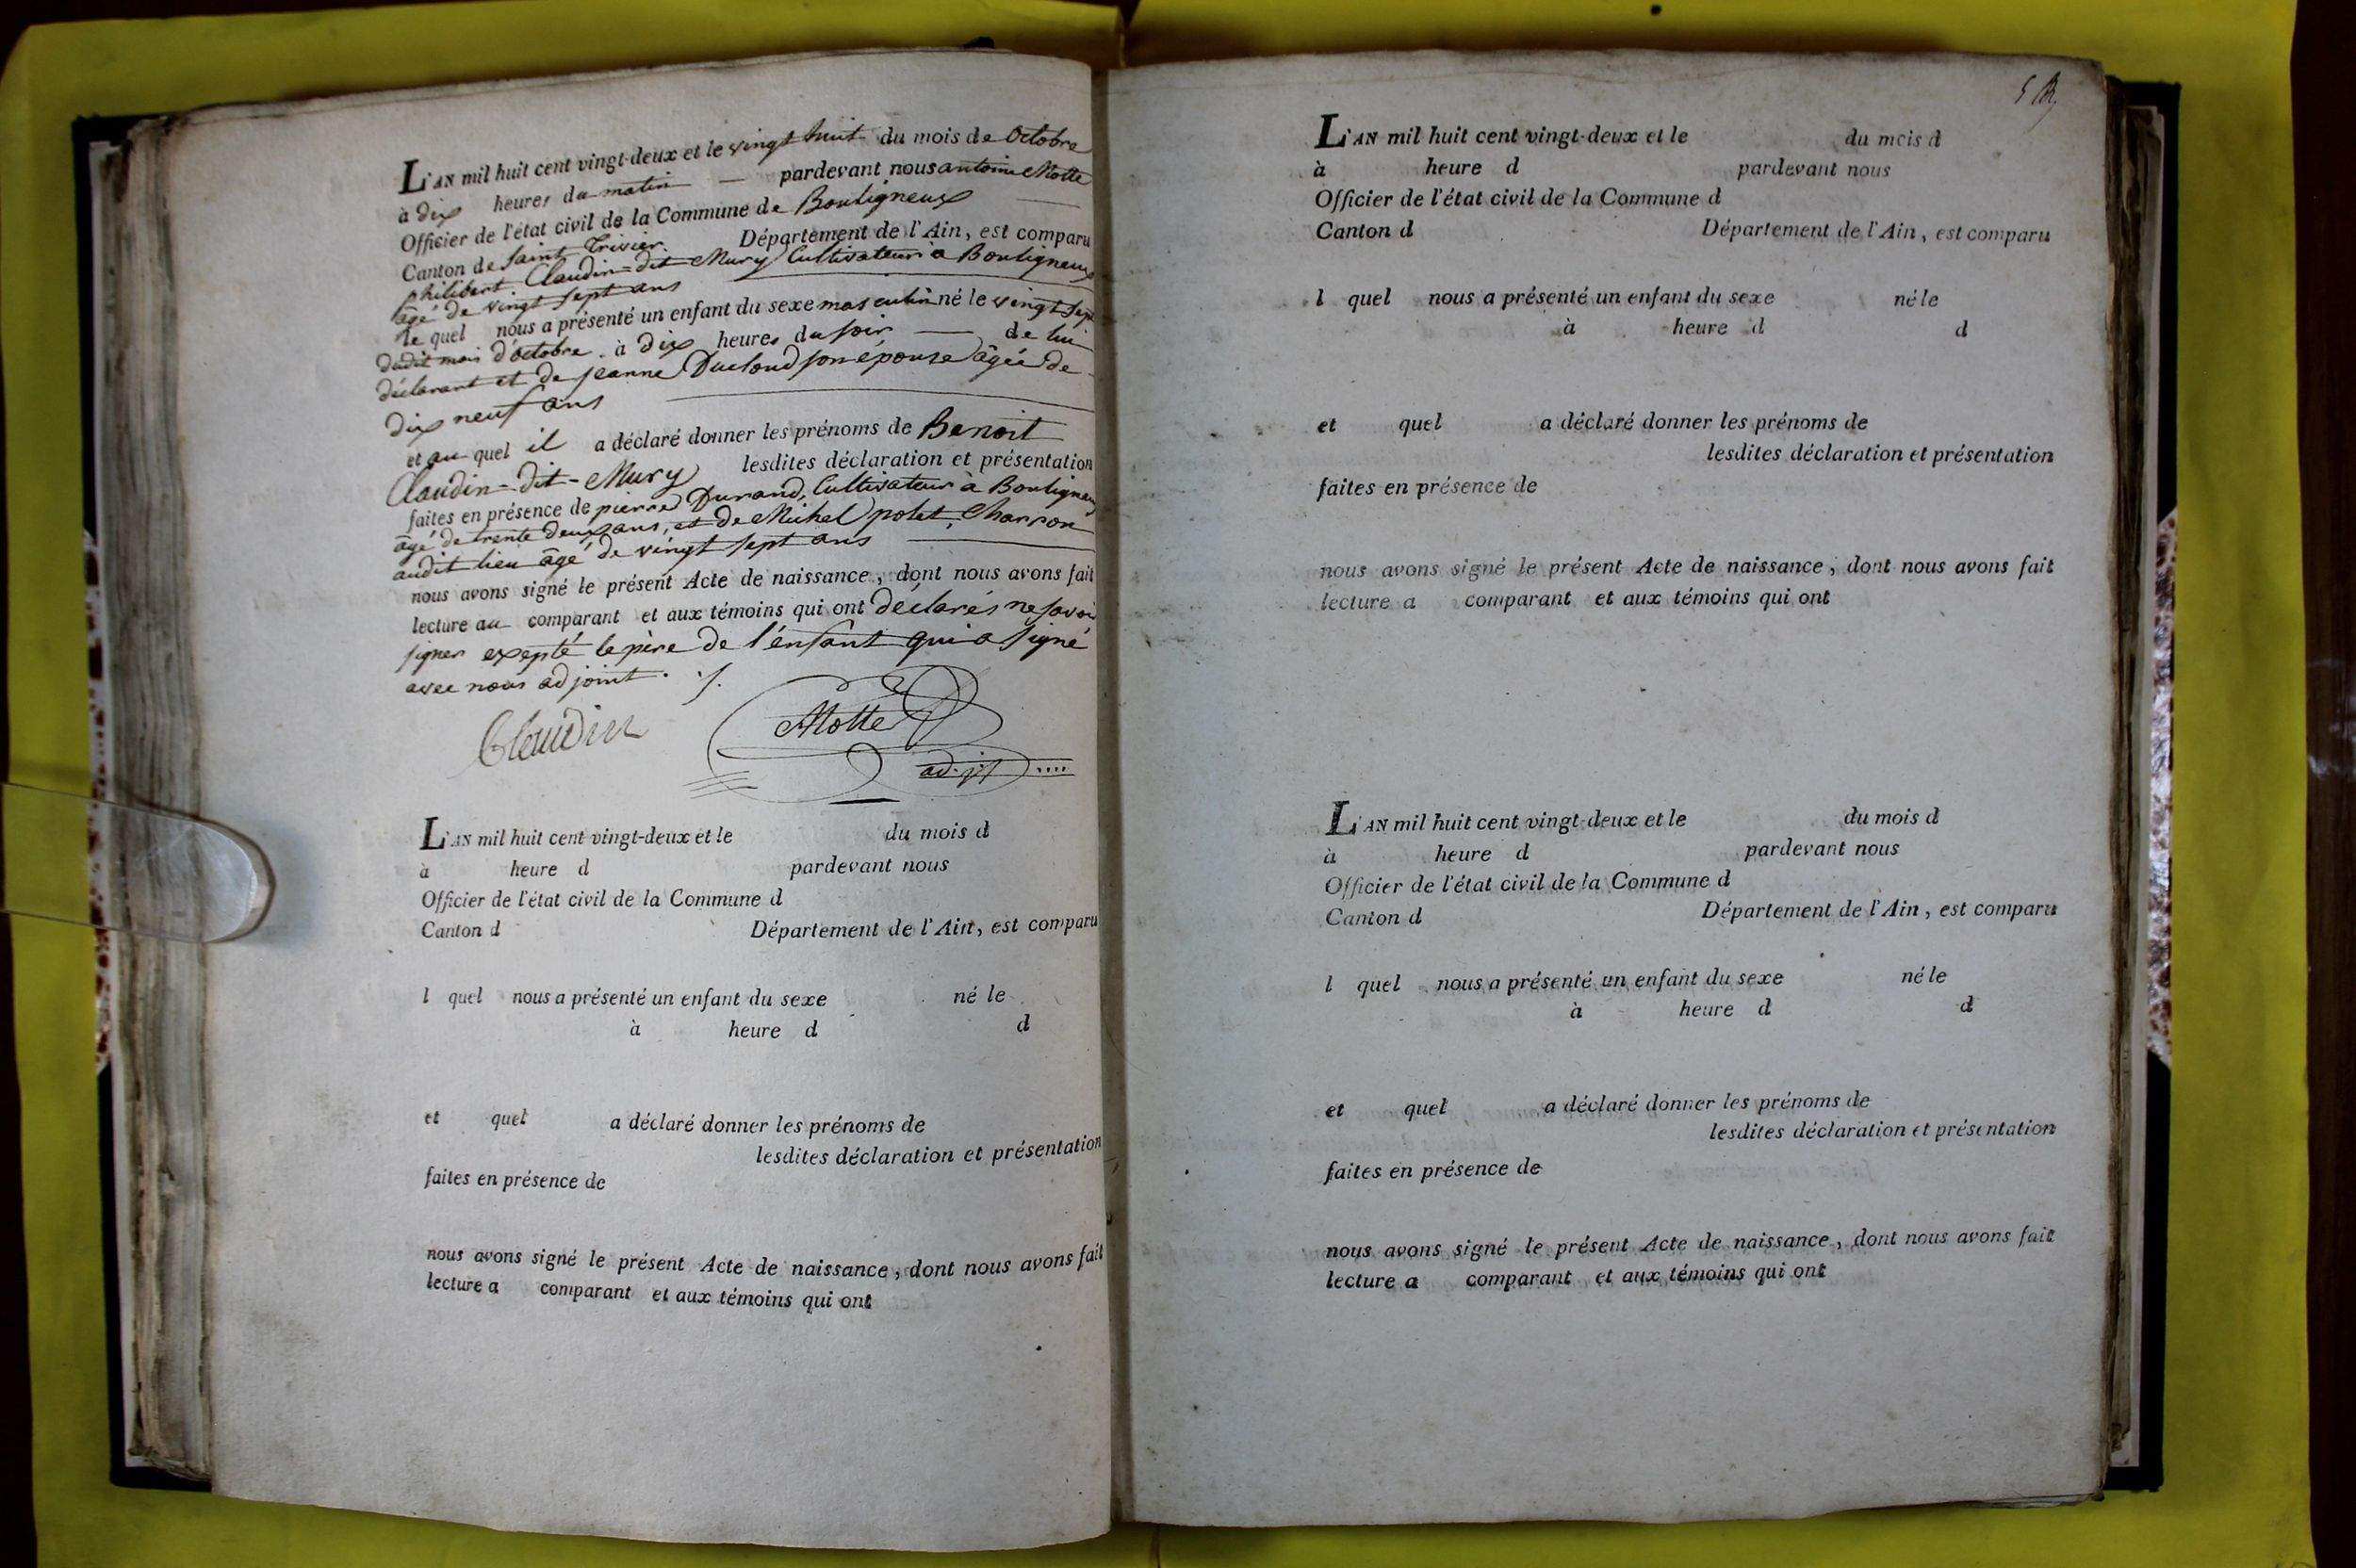 L'AN mil huit cent vingt-deux et le vingt huit du mois de Octobre
à dix heures du matin — pardevant nous antoine Motte
Officier de l'état civil de la Commune de Bouligneux
Canton de Saint Trivier Département de l'Ain, est comparu
philibert Claudin-dit-Mury Cultivateur à Bouligneux
âgé de vingt sept ans
le quel nous a présenté un enfant du sexe masculin né le vingt sept
dudit mois d'octobre à dix heures du soir — de lui
déclarant et de jeanne Ducloud son épouse âgée de
dix neuf ans
et au quel il a déclaré donner les prénoms de Benoit
Claudin-dit-Mury lesdites déclaration et présentation
faites en présence de pierre Durand, Cultivateur à Bouligneux
âgé de trente deux ans, et de Michel polet, Charron
audit lieu âgé de vingt sept ans
nous avons signé le présent Acte de naissance, dont nous avons fait
lecture au comparant et aux témoins qui ont déclarés ne savoir
signer exepté le père de l'enfant qui a signé
avec nous adjoint ./.
Claudin Motte
adjt
L'AN mil huit cent vingt-deux et le du mois d
à heure d pardevant nous
Officier de l'état civil de la Commune d
Canton d Département de l'Ain, est comparu
l quel nous a présenté un enfant du sexe né le
à heure d d
et quel a déclaré donner les prénoms de
lesdites déclaration et présentation
faites en présence de
nous avons signé le présent Acte de naissance, dont nous avons fait
lecture a comparant et aux témoins qui ont
5
L'AN mil huit cent vingt-deux et le du mois d
à heure d pardevant nous
Officier de l'état civil de la Commune d
Canton d Département de l'Ain, est comparu
l quel nous a présenté un enfant du sexe né le
à heure d d
et quel a déclaré donner les prénoms de
lesdites déclaration et présentation
faites en présence de
nous avons signé le présent Acte de naissance, dont nous avons fait
lecture a comparant et aux témoins qui ont
L'AN mil huit cent vingt-deux et le du mois d
à heure d pardevant nous
Officier de l'état civil de la Commune d
Canton d Département de l'Ain, est comparu
l quel nous a présenté un enfant du sexe né le
à heure d d
et quel a déclaré donner les prénoms de
lesdites déclaration et présentation
faites en présence de
nous avons signé le présent Acte de naissance, dont nous avons fait
lecture a comparant et aux témoins qui ont